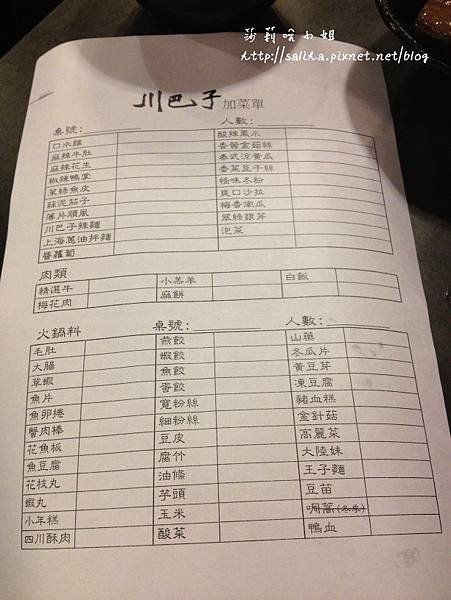 莎莉哈小姐
http://saliha.pixnet.net/blog
川巴子 加菜單
桌號： 人數：
口水雞 酸辣鳳爪
麻辣牛肚 香醬金菇絲
麻辣花生 泰式涼黃瓜
椒辣鴨掌 香菜豆干絲
翠綠魚皮 怪味冬粉
蒜泥茄子 爽口沙拉
薄片順風 梅香南瓜
川巴子辣麵 翠綠銀芽
上海蔥油拌麵 泡菜
醬蘿蔔
肉類
精選牛 小羔羊 白飯
梅花肉 麻餅
火鍋料 桌號： 人數：
毛肚 燕餃 山藥
大腸 蝦餃 冬瓜片
草蝦 魚餃 黃豆芽
魚片 蛋餃 凍豆腐
魚卵捲 寬粉絲 豬血糕
蟹肉棒 細粉絲 金針菇
花魚板 豆皮 高麗菜
魚豆腐 腐竹 大陸妹
花枝丸 油條 王子麵
蝦丸 芋頭 豆苗
小年糕 玉米 茼蒿(冬季)
四川酥肉 酸菜 鴨血